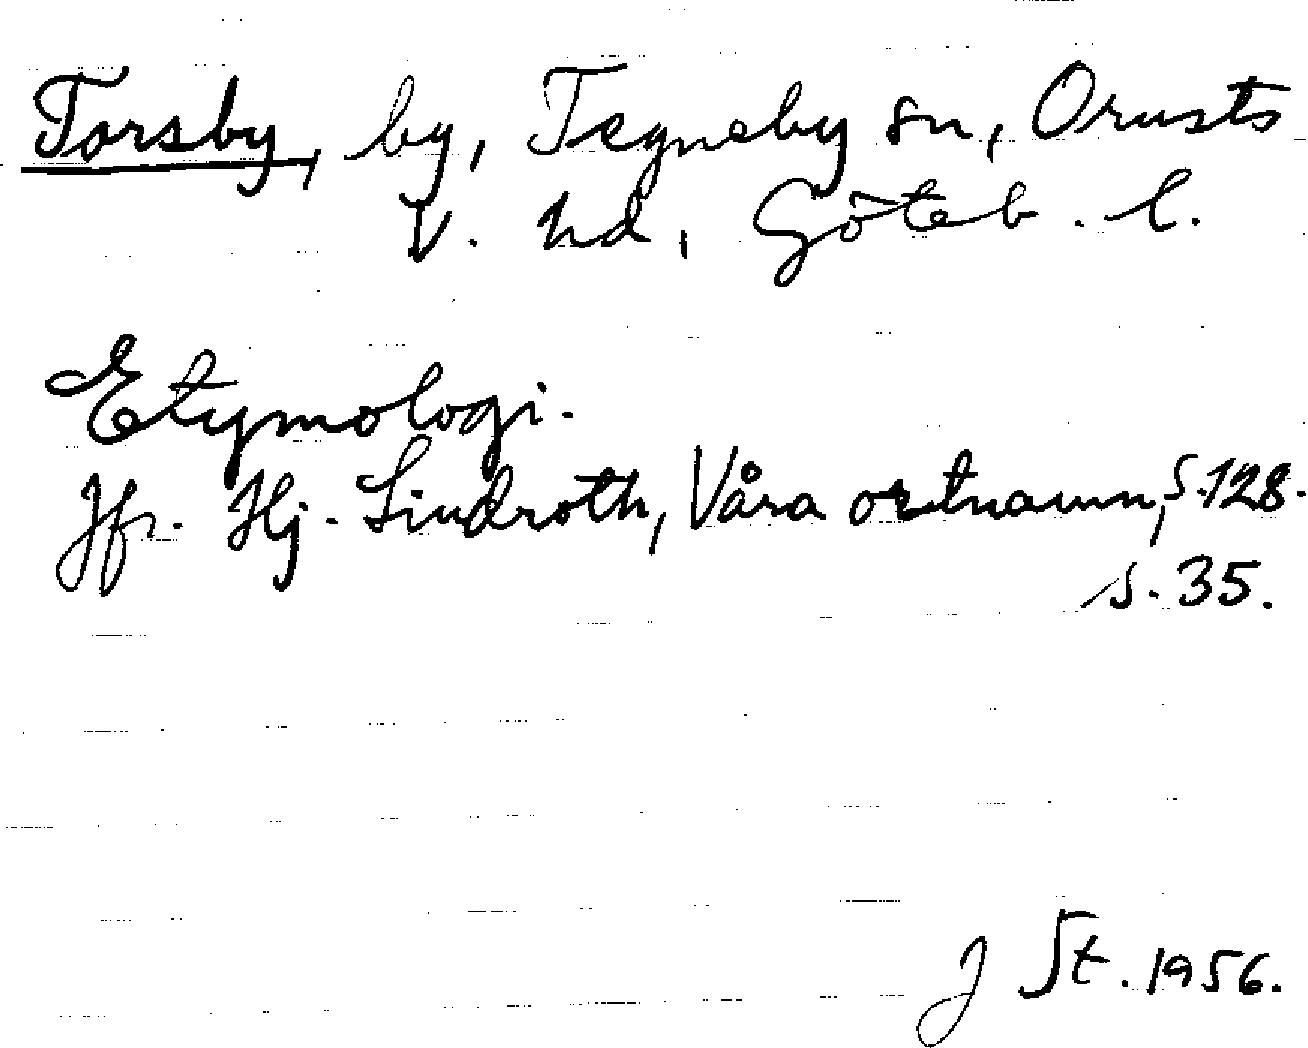 Torsby, by, Tegneby sn, Orusts
V. hd, Göteb. l.
Etymologi.
Jfr. Hj. Lindroth, Våra ortnamn, s. 128.
s. 35.
J St. 1956.